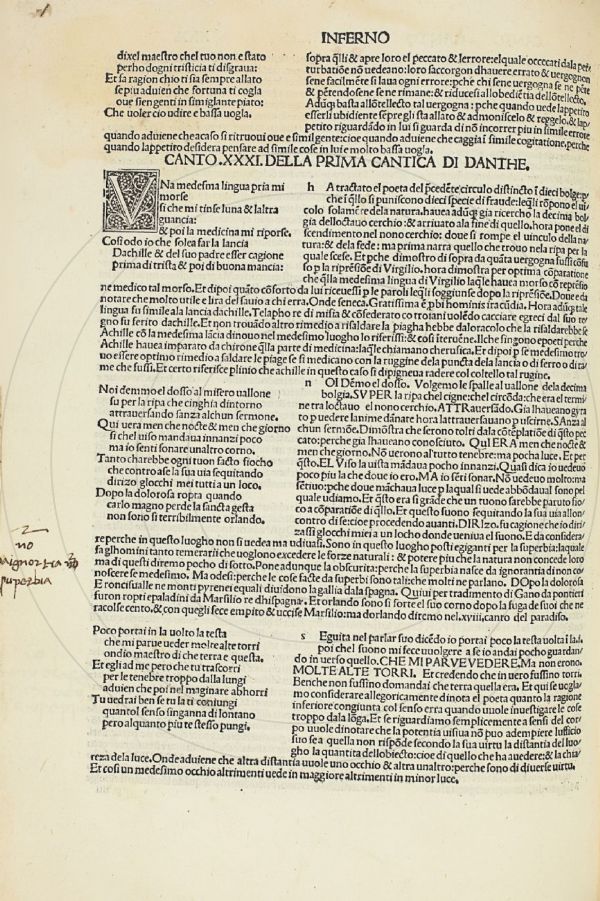 INFERNO
dixel maestro chel tuo non e stato
perho dogni tristicia ti disgraua:
Et fa ragion chio ti sia sempre allato
se piu aduien che fortuna ti cogla
oue sien genti in simiglante piato:
Che uoler cio udire e bassa uogla.
sopra q̄lli & apre loro el peccato & lerrore: elquale occecati dala per
turbatiõe nõ uedeano: loro saccorgon dhauere errato & uergognon
sene facilmẽte si laui ogni errore: pche chi sene uergogna se ne pẽte
& pẽtendosene se ne rimane: & riducesi allobedítia dellõtellecto.
Adūq; basta allõtellecto tal uergogna: pche quando uede lappetito
esserli ubidiente sẽpre gli sta allato & admoniscelo & reggelo, & lap
petito riguardãdo in lui si guarda di nõ incorrer piu in simile errore
quando aduiene che acaso si ritruoui oue e simil gente: cioe quando ch caggia í simile cogitatione, perche
quando lappetito desidera pensare ad simile cose in lui e molto bassa uogla.
CANTO .XXXI. DELLA PRIMA CANTICA DI DANTHE.
VNa medesima lingua pria mi
morse
si che mi tinse luna & laltra
guancia:
& poi la medicina mi riporse.
Cosi odo io che solea far la lancia
Dachille & del suo padre esser cagione
prima di trista & poi di buona mancia:
h A tractato el poeta del p̄cedẽte circulo distincto í dieci bolge:
che í q̄llo si puniscono dieci specie di fraude: leq̄li rõpono el uí
colo solamẽte dela natura. hauea adūq; gia ricercho la decima bol
gia delloctauo cerchio: & arriuato ala fine di quello. hora pone el di
scendimento nel nono cerchio: doue si rompe il uinculo della na
tura: & dela fede: ma prima narra quello che trouo nela ripa per la
quale scese. Et pche dimostro di sopra da quanta uergogna fussi cõfu
so p la riprẽsiõe di Virgilio. hora dimostra per optima cõparatione
che q̄lla medesima lingua di Virgilio laq̄le hauea morso cõ reprẽsio
ne medico tal morso. Et dipoi quãto cõforto da lui riceuessi p le parole leq̄li soggiunse dopo la riprẽsiõe. Doue e da
notare che molto utile e lira del sauio a chi erra. Onde seneca. Gratissima ẽ pbi hominis iracũdia. Hora adūq; tale
lingua fu simile ala lancia dachille. Telapho re di misia & cõfederato co troiani uolẽdo cacciare egreci dal suo re
gno fu ferito dachille. Et non trouãdo altro rimedio a risaldare la piagha hebbe daloracolo che la risaldarebbe se
Achille cõ la medesima lãcia dinouo nel medesimo luogho lo riferissi: & cosi íteruẽne. Il che singono epoeti perche
Achille hauea imparato da chirone q̄lla parte di medicina: laq̄le chiamano cherusica. Et dipoi p se medesimo tro
uo essere optimo rimedio a saldare le piage se si medicano con la ruggine dela puncta della lancia o di ferro o di ra
me che fussi. Et certo riferisce plinio che achille in questo caso si dipigneua radere col coltello tal rugine.
Noi demmo el dosso al misero uallone
su per la ripa che cinghia dintorno
attrauersando sanzi alchun sermone.
Qui uera men che nocte & men che giorno
si chel uiso mandaua innanzi poco
ma io senti sonare unaltro corno.
Tanto charebbe ogni tuon facto fiocho
che contro ase la sua uia seguitando
dirizo glocchi mei tutti a un loco.
Dopo la dolorosa ropta quando
carlo magno perde la sancta gesta
non sono si terribilmente orlando.
n OI Dẽmo el dosso. Volgemo le spalle al uallone dela decima
bolgia. SVPER la ripa chel cigne: chel circõda: che era el termi
ne tra loctauo el nono cerchio. ATTRauersãdo. Gia lhaueano gyra
to p uedere lanime dãnate hora lattrauersauano p uscirne. SAnza al
chun sermõe. Dimostra che serono tolti dala cõtẽplatiõe di q̄sto pec
cato: perche gia lhaueano conosciuto. QuI ERA men che nocte &
men che giorno. Nõ uerono al tutto tenebre: ma pocha luce. Et per
q̄sto. EL VIso la uista mãdaua pocho innanzi. Quasi dica io uedeuo
poco piu la che doue io ero. MA io seti sonar. Nõ uedeuo molto: ma
sẽtiuo: pche doue mãchaua luce p laqual si uede abbõdaua il sono pel
quale udiamo. Et q̄sto era si grãde che un tuono sarebbe paruto fio
co a cõparatiõe di q̄llo. Et questo suono sequitando la sua uia allon
contro di se: cioe procedendo auanti. DIRIzo. fu cagione che io diri
zassi glocchi miei a un locho donde ueniua el suono. E da considera
re perche in questo luogho non si uedea ma udiuasi. Sono in questo luogho posti egiganti per la superbia: laquale
fa glhomini tanto temerarii che uoglono excedere le forze naturali: & potere piu che la natura non concede loro
ma di questi diremo pocho di sotto. Pone adunque la obscurita: perche la superbia nasce da ignorantia di non co
noscere se medesimo. Ma odesi: perche le cose facte da superbi sono tali: che molti ne parlano. DOpo la dolorosa
E roncisualle ne monti pyrenei equali diuidono la gallia dala spagna. Quiui per tradimento di Gano da pontieri
furon ropti epaladini da Marsilio re dhispagna. Et orlando sono si forte el suo corno dopo la fuga de suoi che ne
racolse cento, & con quegli sece empito & uccise Marsilio: ma dorlando diremo nel .xviii. canto del paradiso.
Poco portai in la uolto la testa
che mi parue ueder molte alte torri
ondio maestro di che terra e questa.
Et egli ad me pero che tu trascorri
per le tenebre troppo dalla lungi
aduien che poi nel maginare abhorri
Tu uedrai ben se tu la ti coniungi
quantol senso singanna di lontano
pero alquanto piu te stesso pungi.
s Eguita nel parlar suo dicẽdo io portai poco la testa uolta í la.
poi chel suono mi fece uoglere a se io andai pocho guardan
do in uerso quello. CHE MI PARVE VEDERE. Ma non erono.
MOLTE ALTE TORRI. Et credendo che in uero fussino torri.
Benche non fussino domandai che terra quella era. Et qui se uegla
mo considerare allegoricamente dinota el poeta quanto la ragione
inferiore congiunta col senso erra quando uuole inuestigare le cose
troppo dala lõga. Et se riguardiamo semplicemente a sensi del cor
po uuole dinotare che la potentia uisiua nõ puo adempiere lufficio
suo se a quella non rispõde secondo la sua uirtu la distantia del luo
gho la quantita dellobiecto: cioe di quello che ha auedere: & la chia
reza dela luce. Onde aduiene che altra distantia uuole uno occhio & altra unaltro: perche sono di diuerse uirtu.
Et cosi un medesimo occhio altrimenti uede in maggiore altrimenti in minor luce.